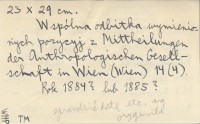 23 x 29 cm.
Wspólna odbitka wymienio-
nych pozycyj z Mittheilungen
der Anthropologischen Gesell-
schaft in Wien (Wien) 14 (4).
Rok 1884? lub 1885?
sprawdzić datę etc. wg
oryginału
WHP TM